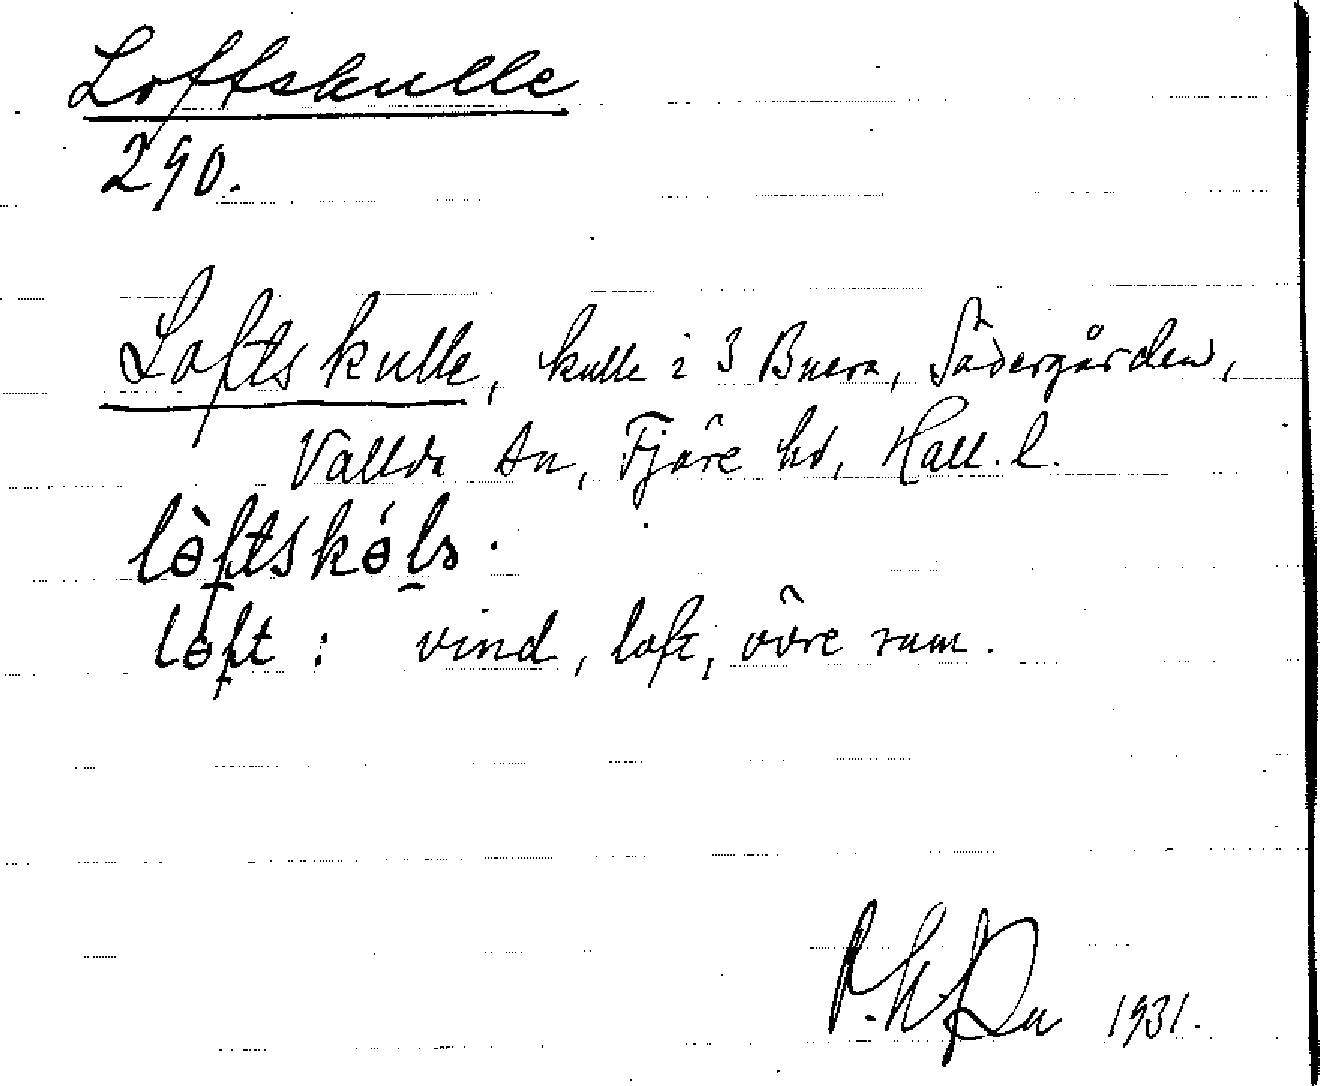 Loftskulle
290.
Loftskulle, kulle i 3 Buera, Södergården,
Vallda sn, Fjäre hd, Hall. l.
lòftskóls.
loft: vind, loft, övre rum.
1931.